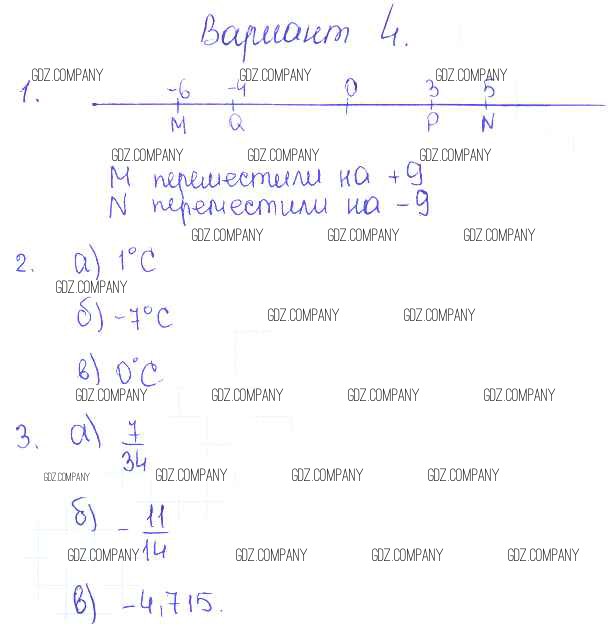 Вариант 4.
GDZ.COMPANY GDZ.COMPANY GDZ.COMPANY
1. -6 -4 0 3 5
M Q P N
GDZ.COMPANY GDZ.COMPANY GDZ.COMPANY
M переместили на +9
N переместили на -9
GDZ.COMPANY GDZ.COMPANY GDZ.COMPANY
2. а) 1°C
GDZ.COMPANY
б) -7°C GDZ.COMPANY GDZ.COMPANY
в) 0°C
GDZ.COMPANY GDZ.COMPANY GDZ.COMPANY GDZ.COMPANY
3. а) 7/34
GDZ.COMPANY GDZ.COMPANY GDZ.COMPANY GDZ.COMPANY
б) -11/14
GDZ.COMPANY GDZ.COMPANY GDZ.COMPANY GDZ.COMPANY
в) -4,715.